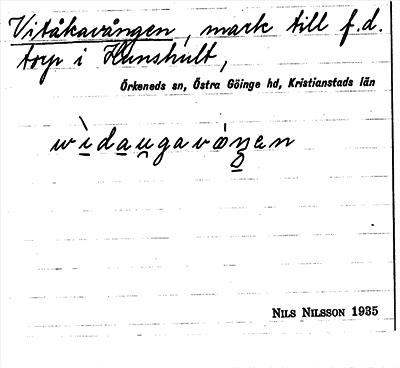 Vitåkavången, mark till f.d.
torp i Hunshult,
Örkeneds sn, Östra Göinge hd, Kristianstads län
wìdaugavóŋen
NILS NILSSON 1935